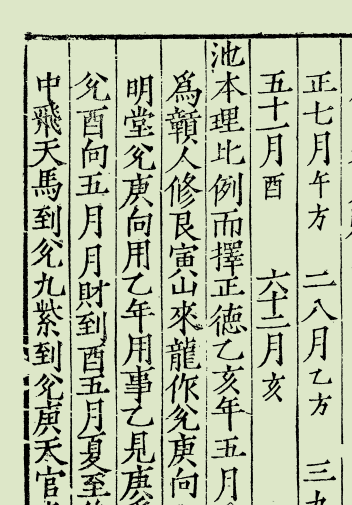 正七月午方 二八月乙方 三九
五十一月酉 六十二月亥
池本理比例而擇正德乙亥年五月
為贑人修艮寅山來龍作兊庚向
明堂兊庚向用乙年用事乙見庚
兊酉向五月月財到酉五月夏至
中飛天馬到兊九紫到兊庚天官